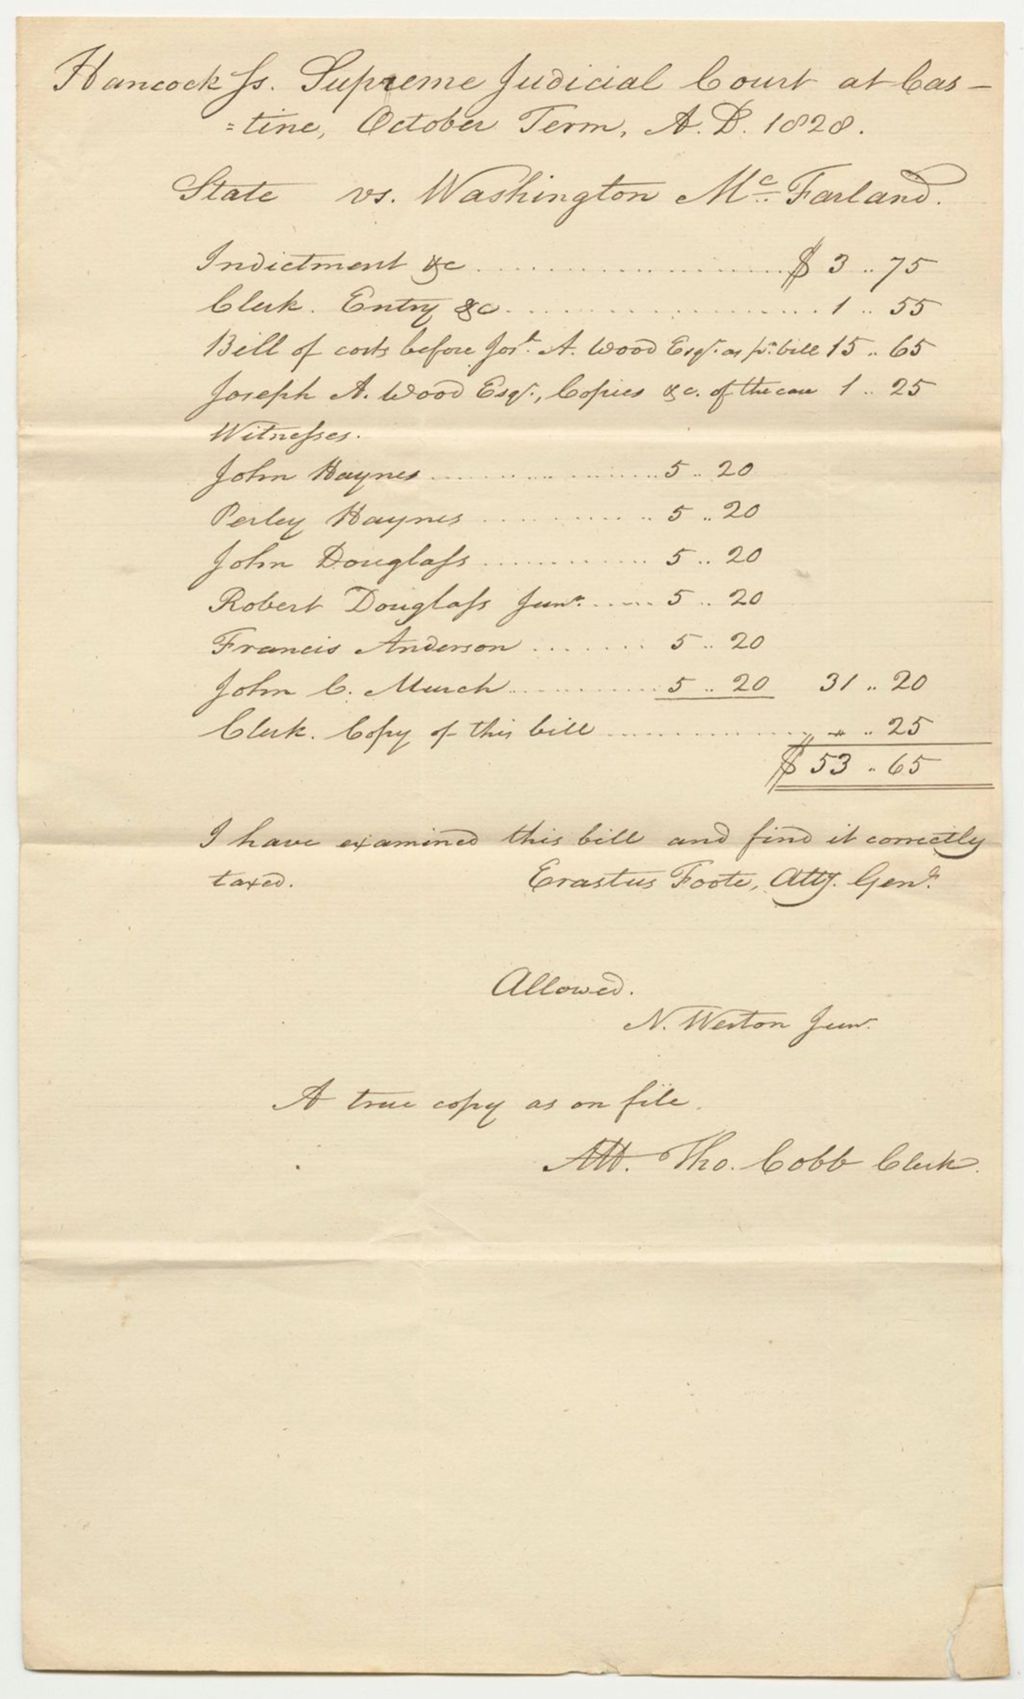 Hancock ss. Supreme Judicial Court at Cas-
=tine, October Term, A.D. 1828.
State vs. Washington Mc Farland.
Indictment &c .................... $ 3 .. 75
Clerk. Entry &c .................... 1 .. 55
Bill of costs before Jos. A. Wood Esqr. as pr. bill 15 .. 65
Joseph A. Wood Esqr., Copies &c. of the case 1 .. 25
Witnesses.
John Haynes .................... 5 .. 20
Perley Haynes .................... 5 .. 20
John Douglass .................... 5 .. 20
Robert Douglass Junr. ...... 5 .. 20
Francis Anderson .......... 5 .. 20
John C. Murch .............. 5 .. 20 31 .. 20
Clerk. Copy of this bill .................... " .. 25
$ 53 .. 65
I have examined this bill and find it correctly
taxed. Erastus Foote, Atty. Genl.
Allowed.
N. Weston Junr.
A true copy as on file.
Att. Tho. Cobb Clerk.